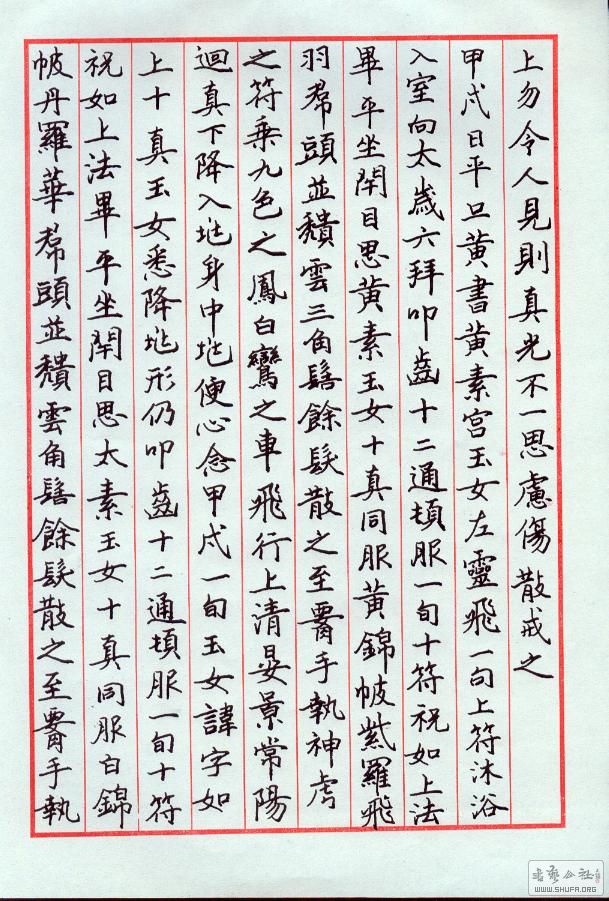 上勿令人見則真光不一思慮傷散戒之
甲戌日平旦黃書黃素宮玉女左靈飛一旬上符沐浴
入室向太歲六拜叩齒十二通頓服一旬十符祝如上法
畢平坐閇目思黃素玉女十真同服黃錦帔紫羅飛
羽帬頭並穨雲三角髻餘髮散之至𦝫手執神虎
之符乗九色之鳳白鸞之車飛行上清晏景常陽
迴真下降入兆身中兆便心念甲戌一旬玉女諱字如
上十真玉女悉降兆形仍叩齒十二通頓服一旬十符
祝如上法畢平坐閇目思太素玉女十真同服白錦
帔丹羅華帬頭並穨雲角髻餘髮散之至𦝫手執
書藝公社
WWW.SHUFA.ORG